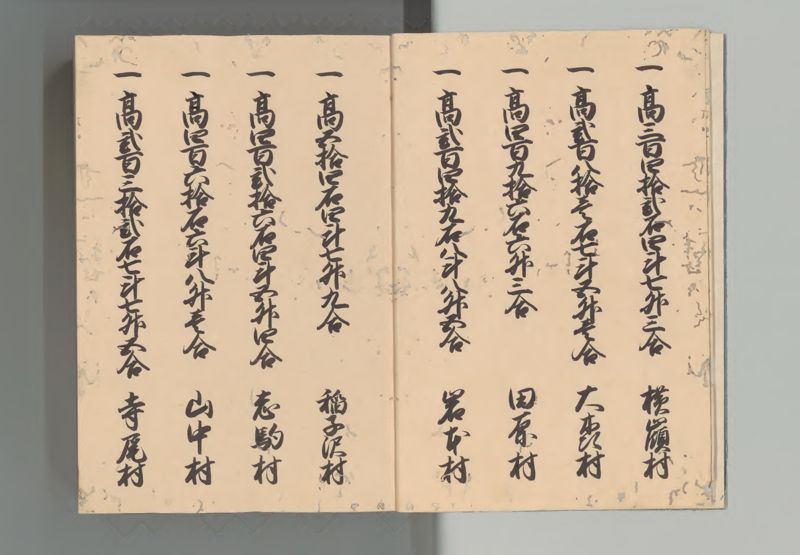 一 高三百四拾弐石四斗七升三合 横嶺村
一 高弐百八拾壱石七斗五升壱合 村
一 高四百九拾六石六升三合 田原村
一 高弐百四拾九石八斗八升五合 岩本村
一 高五拾四石四斗七升九合 稲子沢村
一 高四百弐拾六石四斗五升四合 志駒村
一 高四百六拾石六斗八升壱合 山中村
一 高弐百三拾弐石七斗七升五合 寺尾村